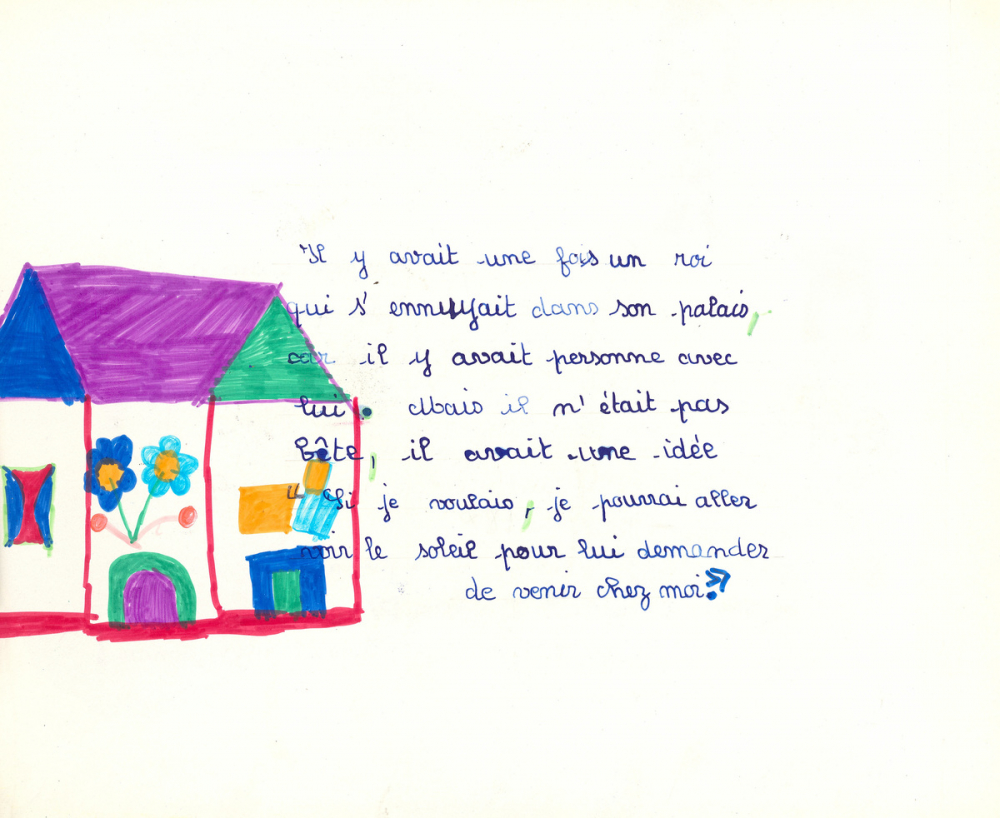 Il y avait une fois un roi
qui s'ennuyait dans son palais,
car il y avait personne avec
lui. Mais il n'était pas
bête, il avait une idée
"Si je voulais, je pourrai aller
voir le soleil pour lui demander
de venir chez moi."